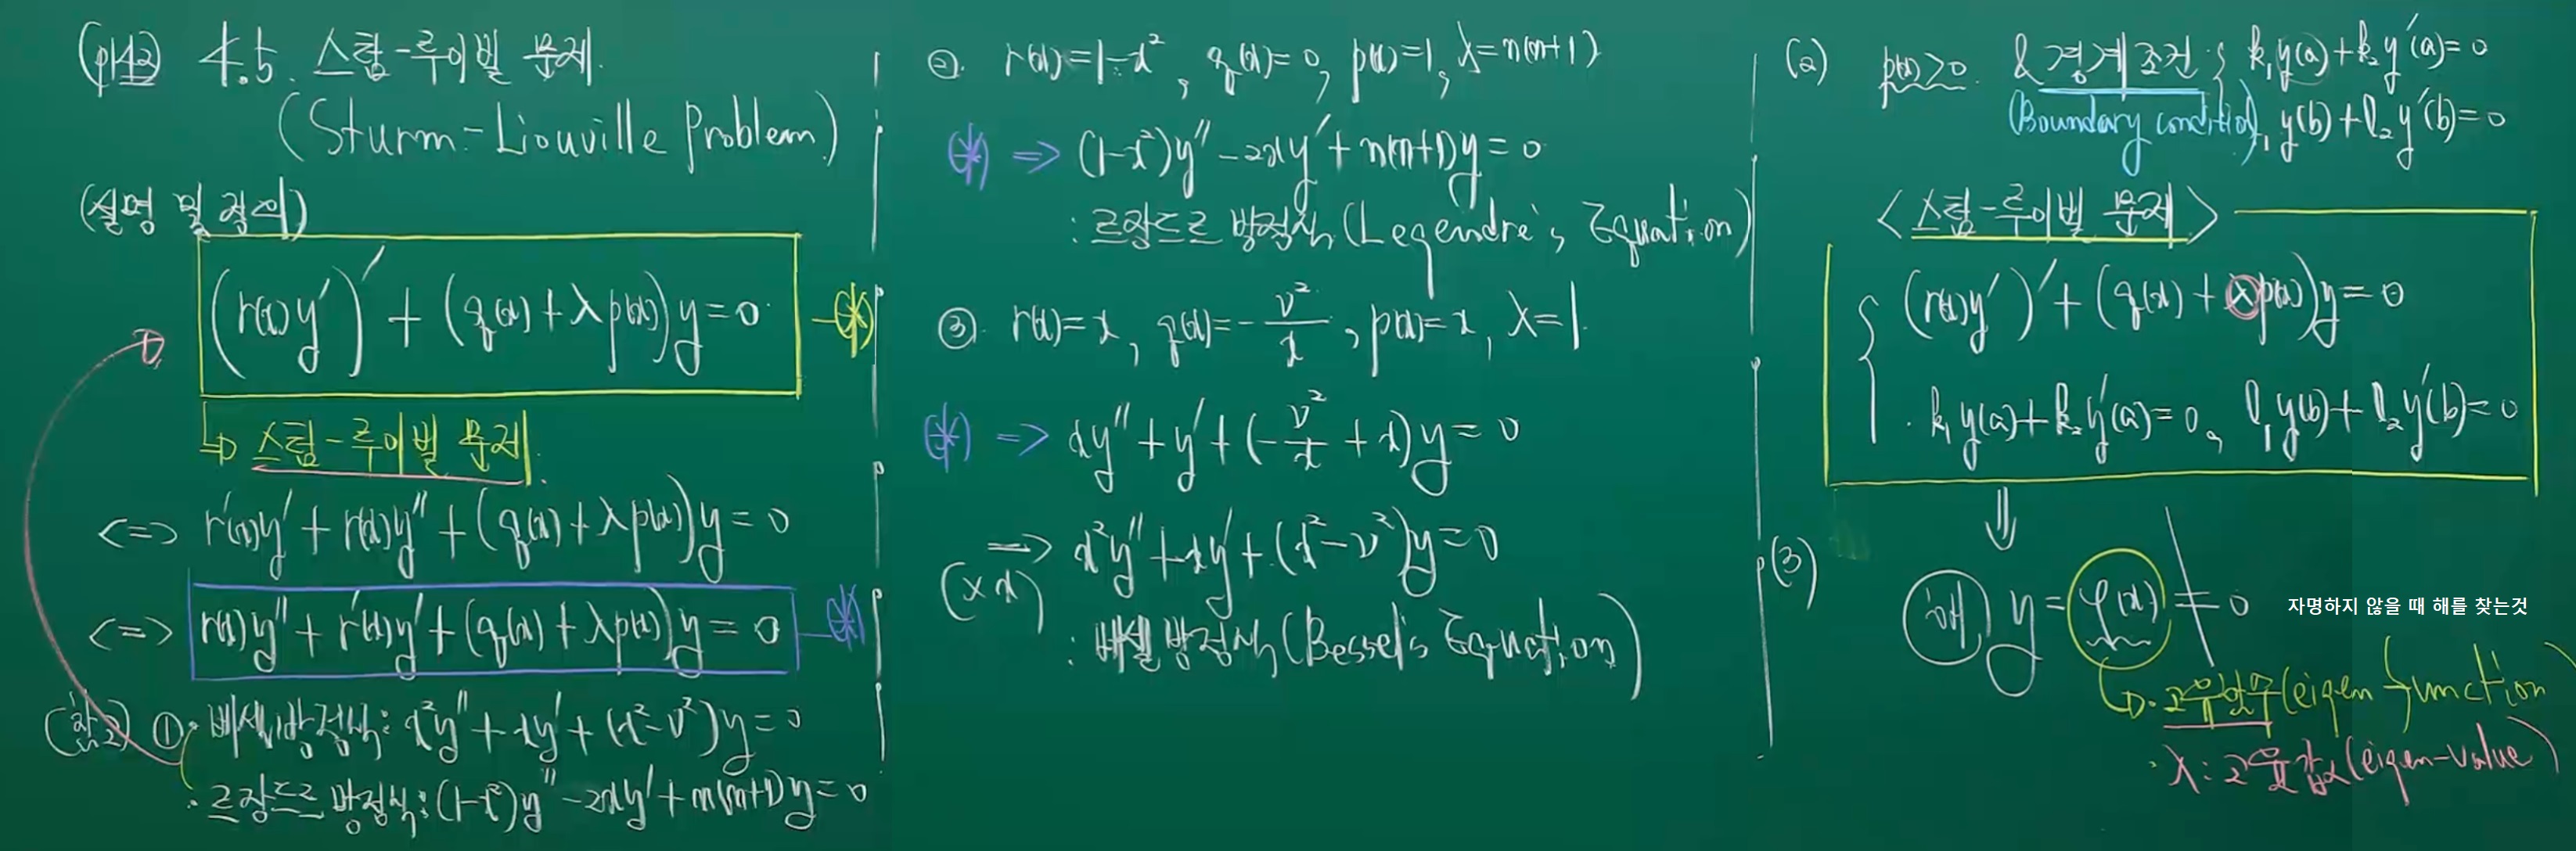 (p142) 4.5. 스텀-루이빌 문제.
(Sturm-Liouville Problem)
(설명 및 정의)
(r(x)y′)′ + (q(x)+λp(x))y=0 -(*)
↳ 스텀-루이빌 문제.
<=> r′(x)y′ + r(x)y″ + (q(x)+λp(x))y = 0
<=> r(x)y″ + r′(x)y′ + (q(x)+λp(x))y = 0 -(*)
(참고) ①· 베셀방정식: x²y″ + xy′ + (x²-ν²)y = 0
· 르장드르 방정식: (1-x²)y″ - 2xy′ + n(n+1)y = 0
②. r(x)=1-x², q(x)=0, p(x)=1, λ=n(n+1)
(*) => (1-x²)y″ - 2xy′ + n(n+1)y = 0
: 르장드르 방정식 (Legendre's Equation)
③. r(x)=x, q(x)=-ν²/x, p(x)=x, λ=1.
(*) => xy″ + y′ + (-ν²/x + x)y = 0
=> x²y″ + xy′ + (x²-ν²)y = 0
(×x)
: 베셀 방정식 (Bessel's Equation)
(2) p(x)>0. & 경계조건 { k₁y(a)+k₂y′(a)=0
(Boundary condition) l₁y(b)+l₂y′(b)=0
<스텀-루이빌 문제>
{ (r(x)y′)′ + (q(x)+λp(x))y = 0
· k₁y(a)+k₂y′(a)=0, l₁y(b)+l₂y′(b)=0
⇓
(3) 해) y = φ(x) ≠ 0 자명하지 않을 때 해를 찾는것
↳· 고유함수(eigen function)
· λ: 고유값(eigen-value)